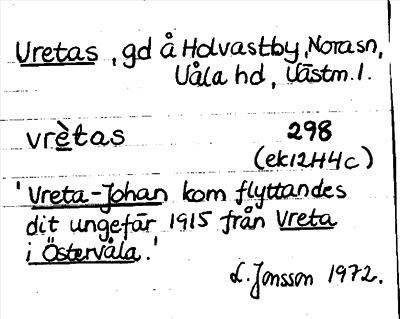 Vretas, gd å Holvastby, Nora sn,
Våla hd, Västm. l.
vrètas 298
(ek12H4c)
'Vreta-Johan kom flyttandes
dit ungefär 1915 från Vreta
i Östervåla.'
L. Jonsson 1972.